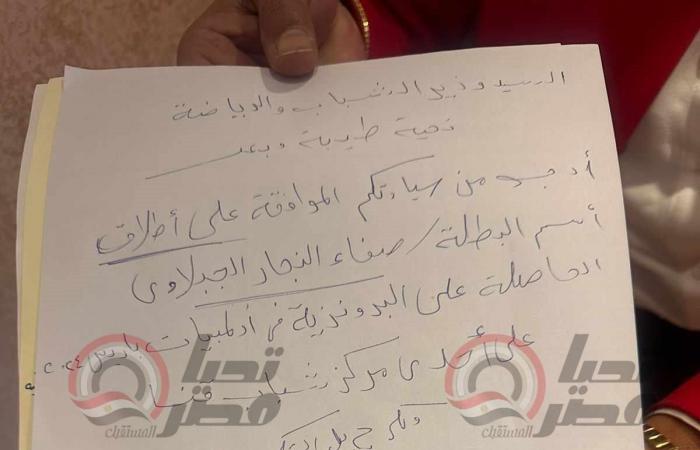 السيد وزير الشباب والرياضة
تحية طيبة وبعد
أرجو من سيادتكم الموافقة على أطلاق
أسم البطلة / صفاء النجار الجبلاوى
الحاصلة على البرونزية فى أولمبيات باريس ٢٠٢٤
على أحدى مركز شباب قنا
ولكم
تحيا مصر
المستقبل
تحيا مصر
المستقبل